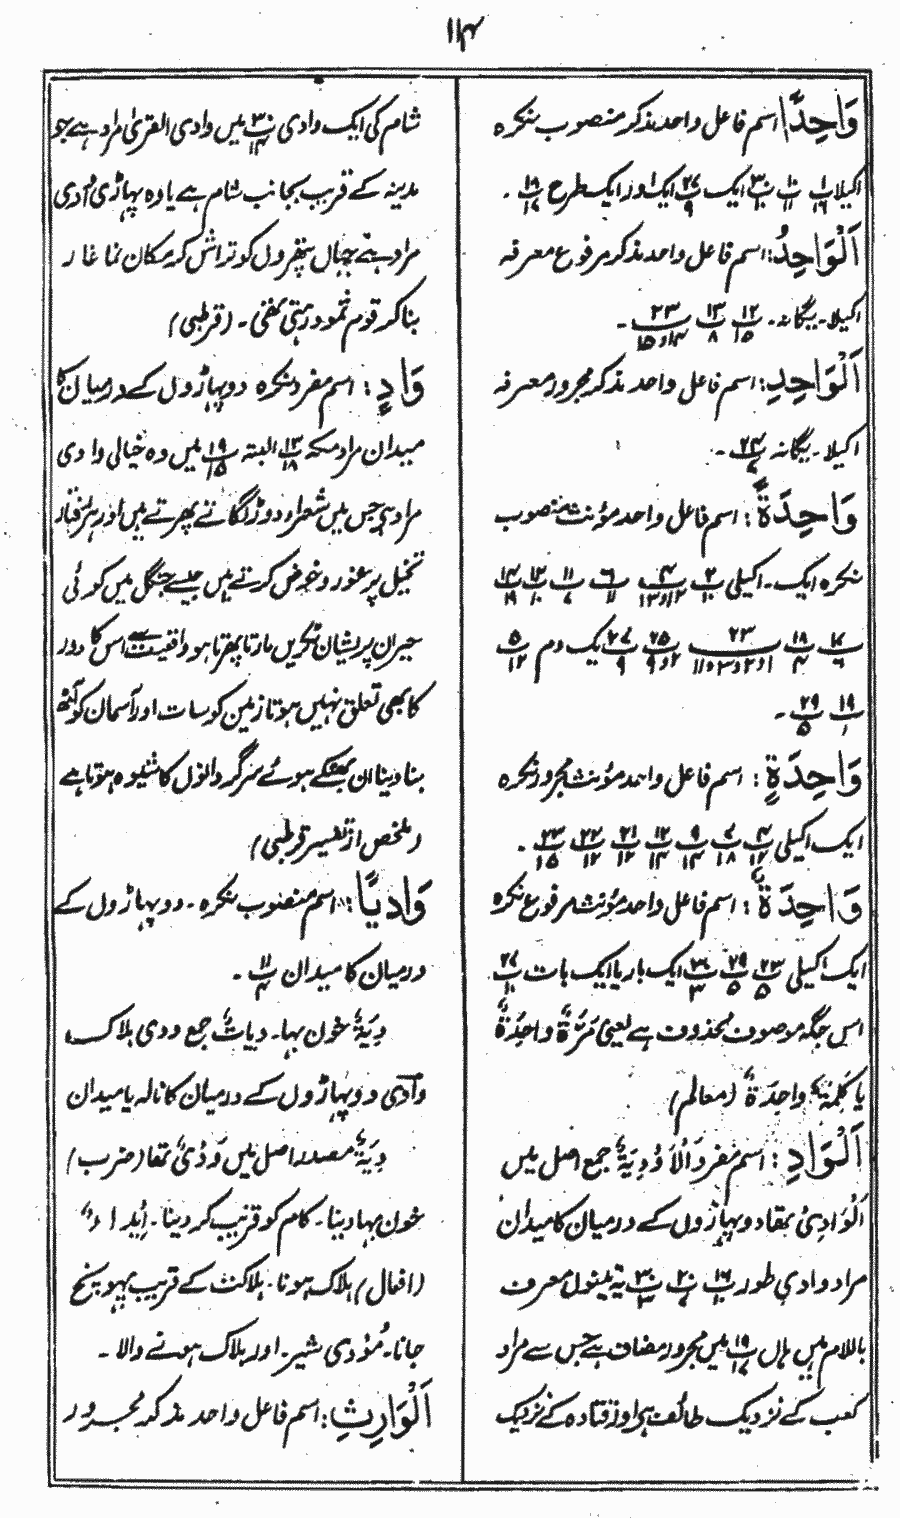 ۱۱۴
وَاحِدًا اسم فاعل واحد مذکر منصوب نکرہ
اکیلا ایک ایک اور ایک طرح
اَلْوَاحِدُ: اسم فاعل واحد مذکر مرفوع معرفہ
اکیلا۔ یگانہ۔ ۱۲/۱۵ ۱۳/۸ ۲۳/۴و۱۵۔
اَلْوَاحِدِ: اسم فاعل واحد مذکر مجرور معرفہ
اکیلا۔ یگانہ ۲۴/۷۔
وَاحِدَۃً: اسم فاعل واحد مؤنث منصوب
نکرہ ایک۔ اکیلی
ایک دم ۵/۱۲
۱۹/۱ ۲۹/۵۔
وَاحِدَۃٍ: اسم فاعل واحد مؤنث مجرور نکرہ
ایک اکیلی ۴/۱۲ ۷/۱۸ ۹/۱۴ ۱۲/۱۴ ۲۱/۱۲ ۲۲/۱۲ ۲۳/۱۵۔
وَاحِدَۃٌ: اسم فاعل واحد مؤنث مرفوع نکرہ
ایک اکیلی ۲۳/۵ ۲۹/۵ ۳۰/۳ ایک بار یا ایک بات ۲۷/۱۰
اس جگہ موصوف محذوف ہے یعنی مَرَّۃٌ وَاحِدَۃٌ
یا کَلِمَۃٌ وَاحِدَۃٌ (معالم)
اَلْوَادِ: اسم مفرد اَلْاَوْدِیَۃُ جمع اصل میں
اَلْوَادِیُ تھا دو پہاڑوں کے درمیان کا میدان
مراد وادیِ طور ۱۶/۱۰ ۲۰/۷ ۳۰/۳ یہ تینوں معرف
باللام ہیں ہاں ۱۹/۱۷ میں مجرور مضاف ہے جس سے مراد
کعب کے نزدیک طائف ہے اور قتادہ کے نزدیک
شام کی ایک وادی ۳۰/۱۴ میں وادی القریٰ مراد ہے جو
مدینہ کے قریب بجانب شام ہے یا وہ پہاڑی وادی
مراد ہے جہاں پتھروں کو تراش کر مکان نما غار
بنا کر قوم ثمود رہتی تھی۔ (قرطبی)
وَادٍ: اسم مفرد نکرہ دو پہاڑوں کے درمیان کا
میدان مراد مکہ ۱۳/۱۸ البتہ ۱۹/۱۵ میں وہ خیالی وادی
مراد ہے جس میں شعراء دوڑ لگاتے پھرتے ہیں اور ہر رفتار
تخیل پر غور و خوض کرتے ہیں جیسے جنگل میں کوئی
حیران پریشان ٹکریں مارتا پھرتا ہو واقعیت سے اس کا دور
کا بھی تعلق نہیں ہوتا زمین کو سات اور آسمان کو آٹھ
بنا دینا ان بھٹکے ہوئے سرگردانوں کا شیوہ ہوتا ہے
(ملخص از تفسیر قرطبی)
وَادِیًا: اسم منصوب نکرہ۔ دو پہاڑوں کے
درمیان کا میدان ۱۱/۴۔
دِیَۃٌ خون بہا۔ دِیَات جمع وَدی ہلاک،
وادی دو پہاڑوں کے درمیان کا نالہ یا میدان
دِیَۃٌ مصدر اصل میں وَدْیٌ تھا (ضرب)
خون بہا دینا۔ کام کو قریب کر دینا۔ اِیْدَاءٌ
(افعال) ہلاک ہونا۔ ہلاکت کے قریب پہونچ
جانا۔ مُؤدِی شیر۔ اور ہلاک ہونے والا۔
اَلْوَارِثِ: اسم فاعل واحد مذکر مجرور